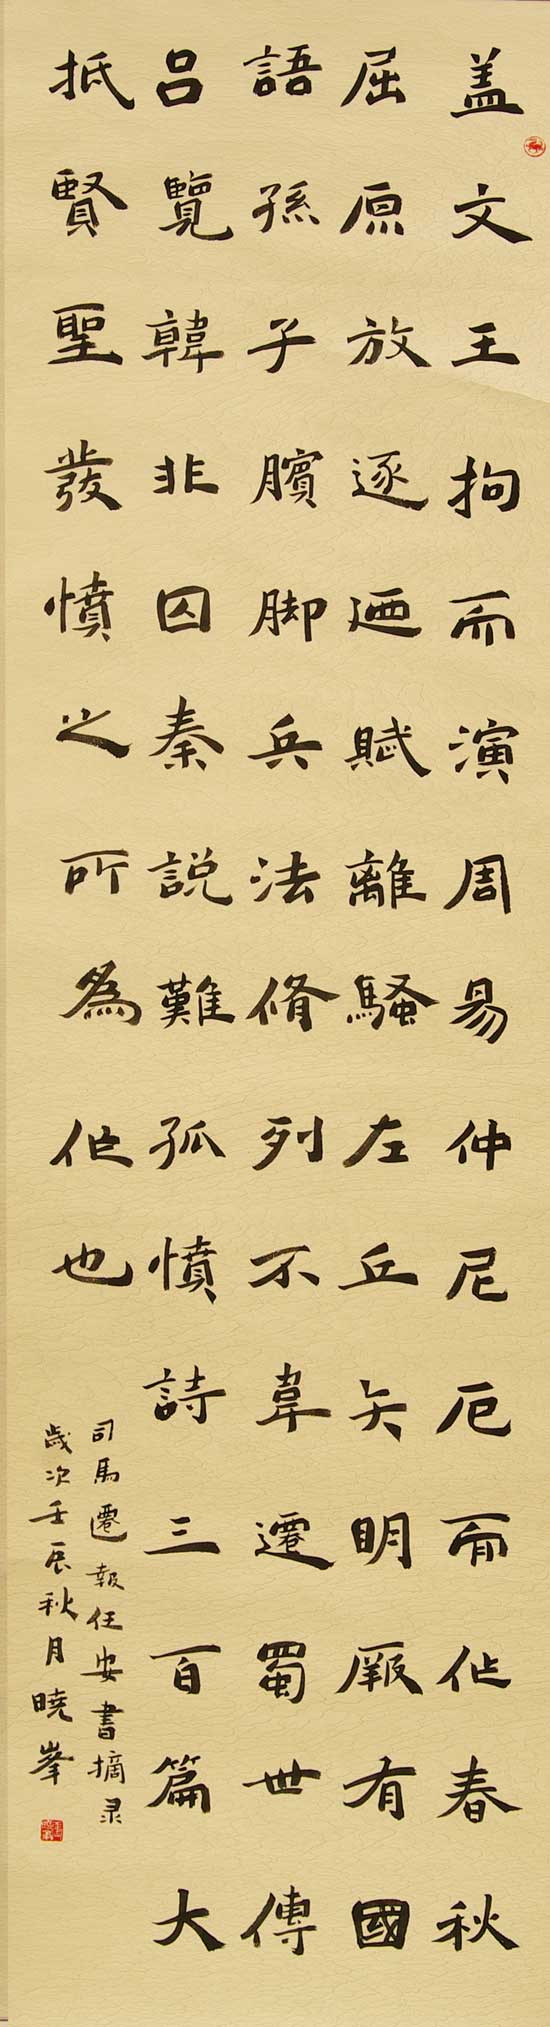 盖文王拘而演周易仲尼厄而作春秋
屈原放逐迺賦離騷左丘失明厥有國
語孫子臏脚兵法脩列不韋遷蜀世傳
吕覽韓非囚秦説難孤憤詩三百篇大
抵賢聖發憤之所為作也
司馬遷報任安書摘录
歲次壬辰秋月曉峯